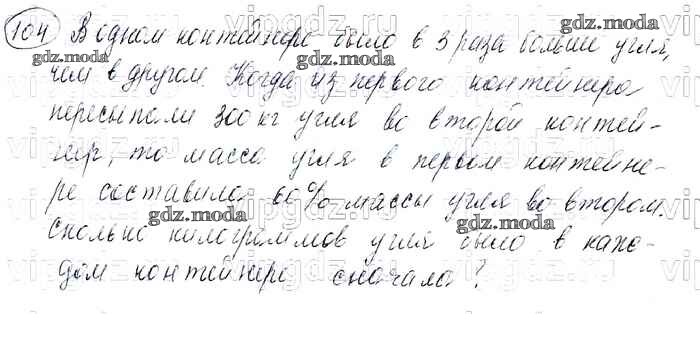 104 В одном контейнере было в 3 раза больше угля,
чем в другом. Когда из первого контейнера
пересыпали 300 кг угля во второй контей-
нер, то масса угля в первом контейне-
ре составила 60% массы угля во втором.
Сколько килограммов угля было в каж-
дом контейнере сначала?
gdz.moda
gdz.moda
gdz.moda
gdz.moda
gdz.moda
gdz.moda